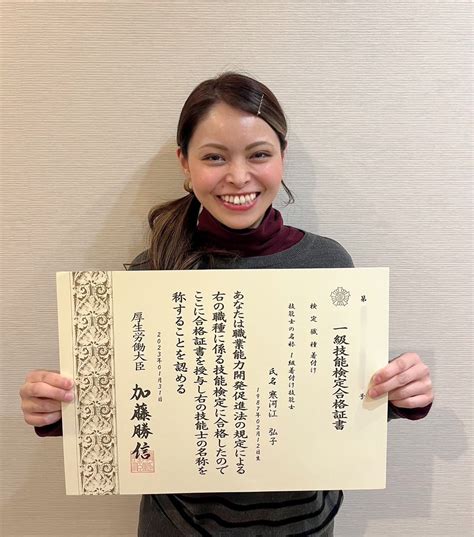 第　　　号
一級技能検定合格証書
検定職種 着付け
技能士の名称 1級着付け技能士
氏名 寒河江 弘子
1987年02月12日生
あなたは職業能力開発促進法の規定による
右の職種に係る技能検定に合格したので
ここに合格証書を授与し右の技能士の名称を
称することを認める
2023年01月31日
厚生労働大臣 加藤勝信